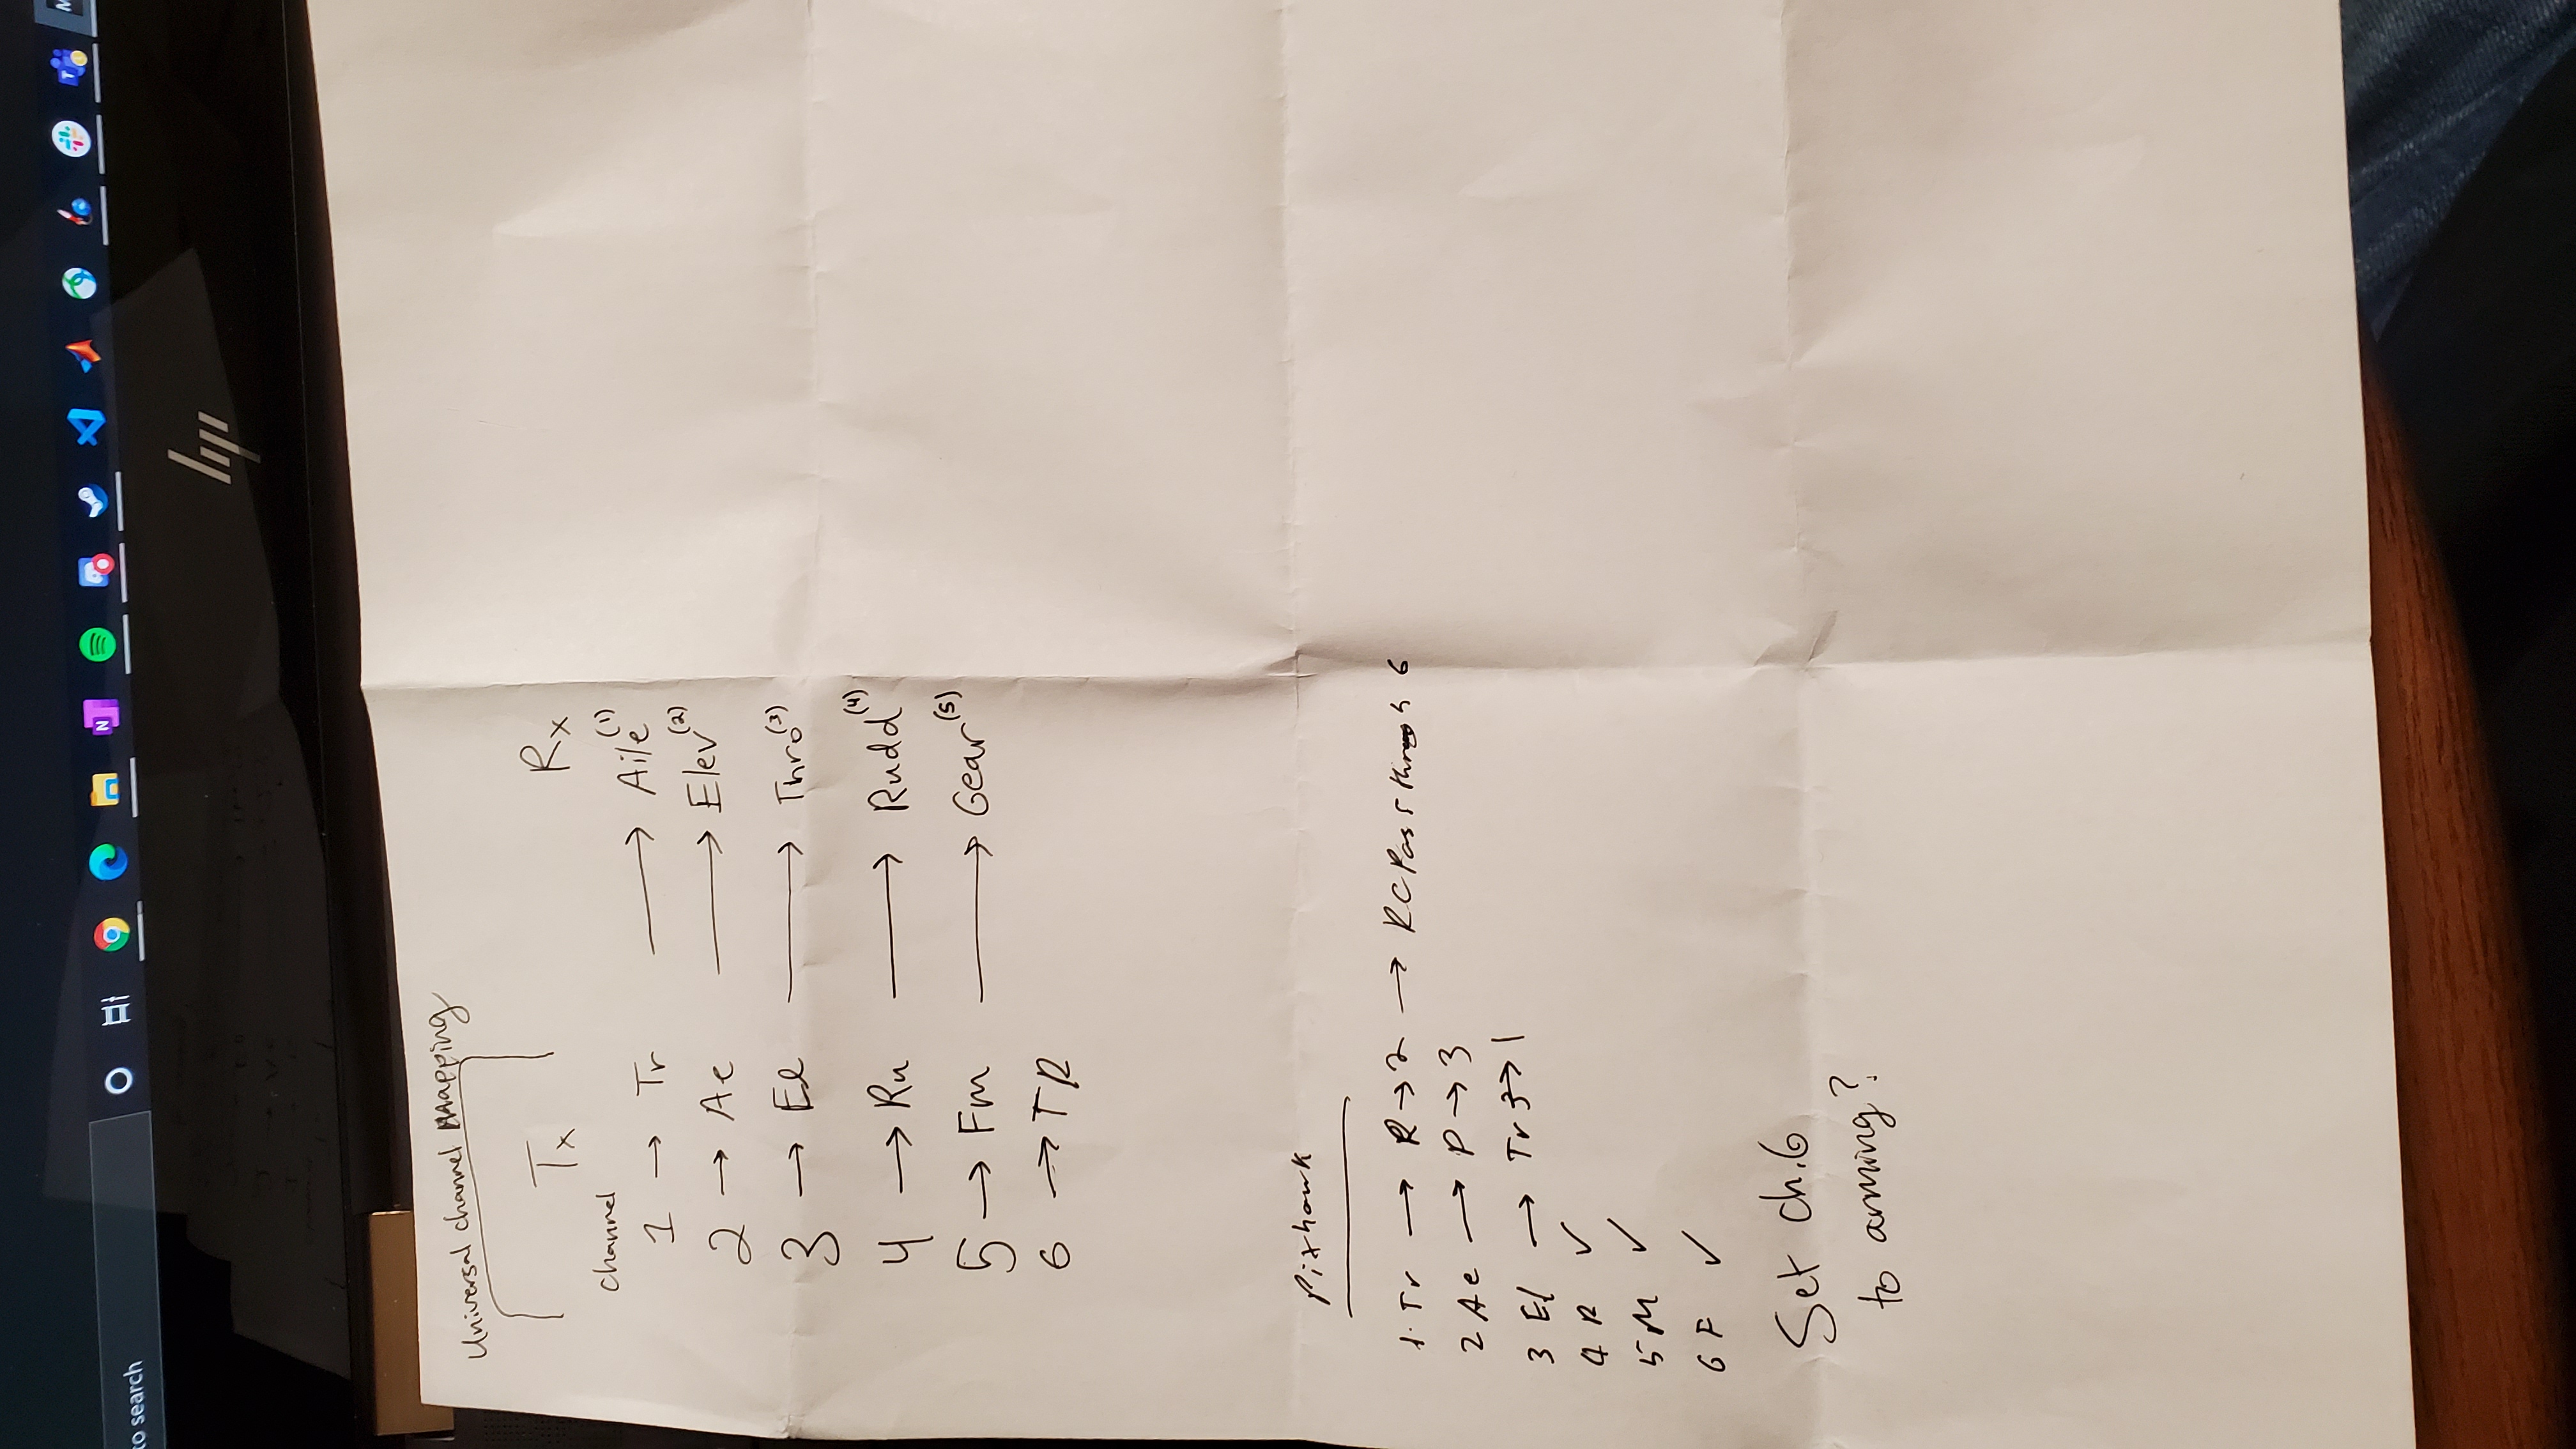 Universal channel Mapping
Tx Rx
channel
1 → Tr → Aile (1)
2 → Ae → Elev (2)
3 → El → Thro (3)
4 → Ru → Rudd (4)
5 → Fm → Gear (5)
6 → TR
Pixhawk
1. Tr → R → 2 → RCPassthru 6
2 Ae → P → 3
3 El → Tr 3 → 1
4 R ✓
5 M ✓
6 F ✓
Set ch.6
to arming?
to search
hp